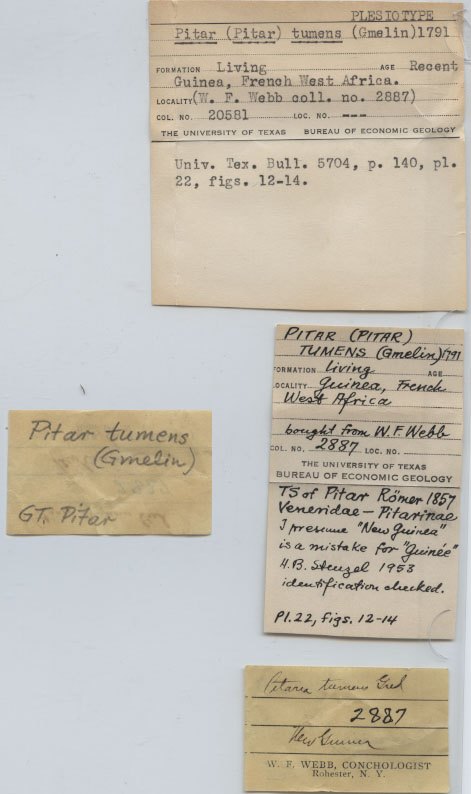 PLESIOTYPE
Pitar (Pitar) tumens (Gmelin)1791
FORMATION Living AGE Recent
Guinea, French West Africa.
LOCALITY (W. F. Webb coll. no. 2887)
COL. NO. 20581 LOC. NO. ---
THE UNIVERSITY OF TEXAS BUREAU OF ECONOMIC GEOLOGY
Univ. Tex. Bull. 5704, p. 140, pl.
22, figs. 12-14.
PITAR (PITAR)
TUMENS (Gmelin) 1791
FORMATION living AGE
LOCALITY Guinea, French
West Africa
bought from W.F. Webb
COL. NO. 2887 LOC. NO.
THE UNIVERSITY OF TEXAS
BUREAU OF ECONOMIC GEOLOGY
TS of Pitar Römer 1857
Veneridae – Pitarinae
I presume "New Guinea"
is a mistake for "Guinée"
H.B. Stenzel 1953
identification checked.
Pl. 22, figs. 12-14
Pitar tumens
(Gmelin)
GT. Pitar
Pitaria tumens Gml
2887
New Guinea
W. F. WEBB, CONCHOLOGIST
Rohester, N. Y.